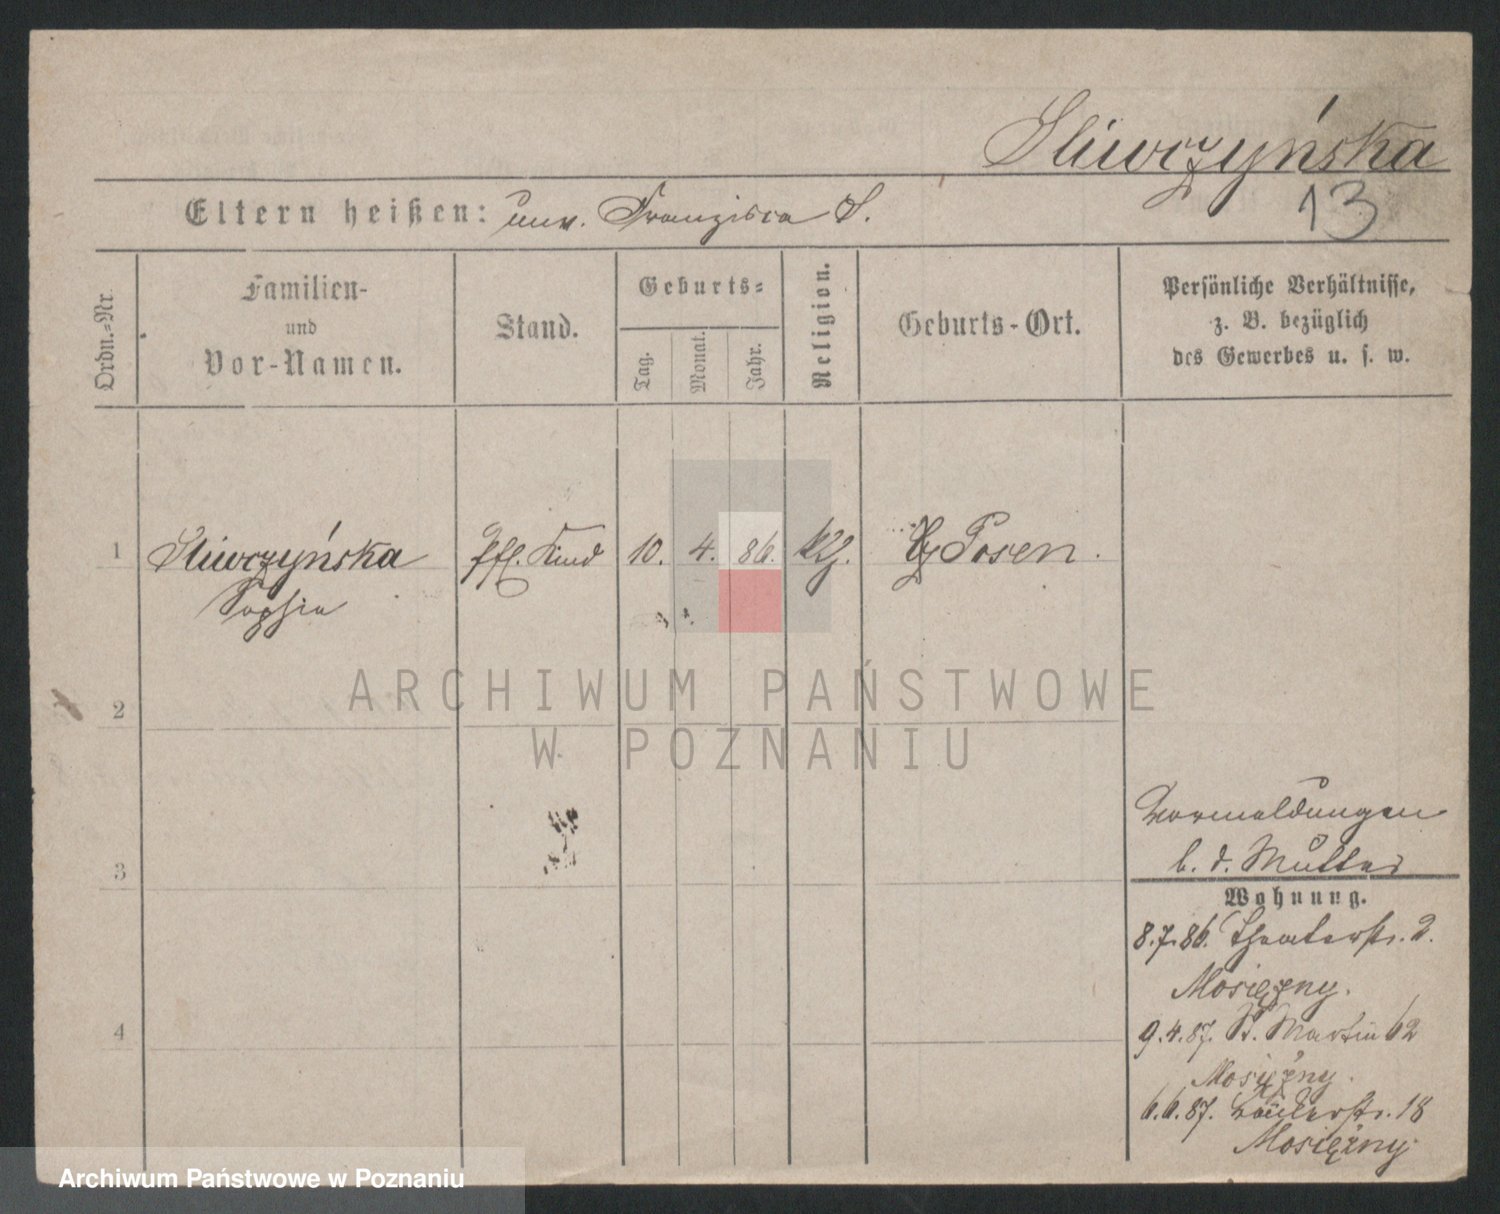 Sliwczyńska
13
Eltern heißen: unv. Franzisca S.
Ordn.=Nr.
Familien-
und
Vor-Namen.
Stand.
Geburts=
Tag.
Monat.
Jahr.
Religion.
Geburts-Ort.
Persönliche Verhältnisse,
z. B. bezüglich
des Gewerbes u. s. w.
1 Sliwczyńska Pfl. Kind 10. 4. 86. Posen.
Sophie
2
3
4
Vormeldungen
b. d. Mutter
Wohnung.
8.7.86. Theaterstr. 2.
Mosiężny.
9.4.87. St. Martin 62
Mosiężny.
6.6.87. Bäckerstr. 18
Mosiężny
ARCHIWUM PAŃSTWOWE
W POZNANIU
Archiwum Państwowe w Poznaniu